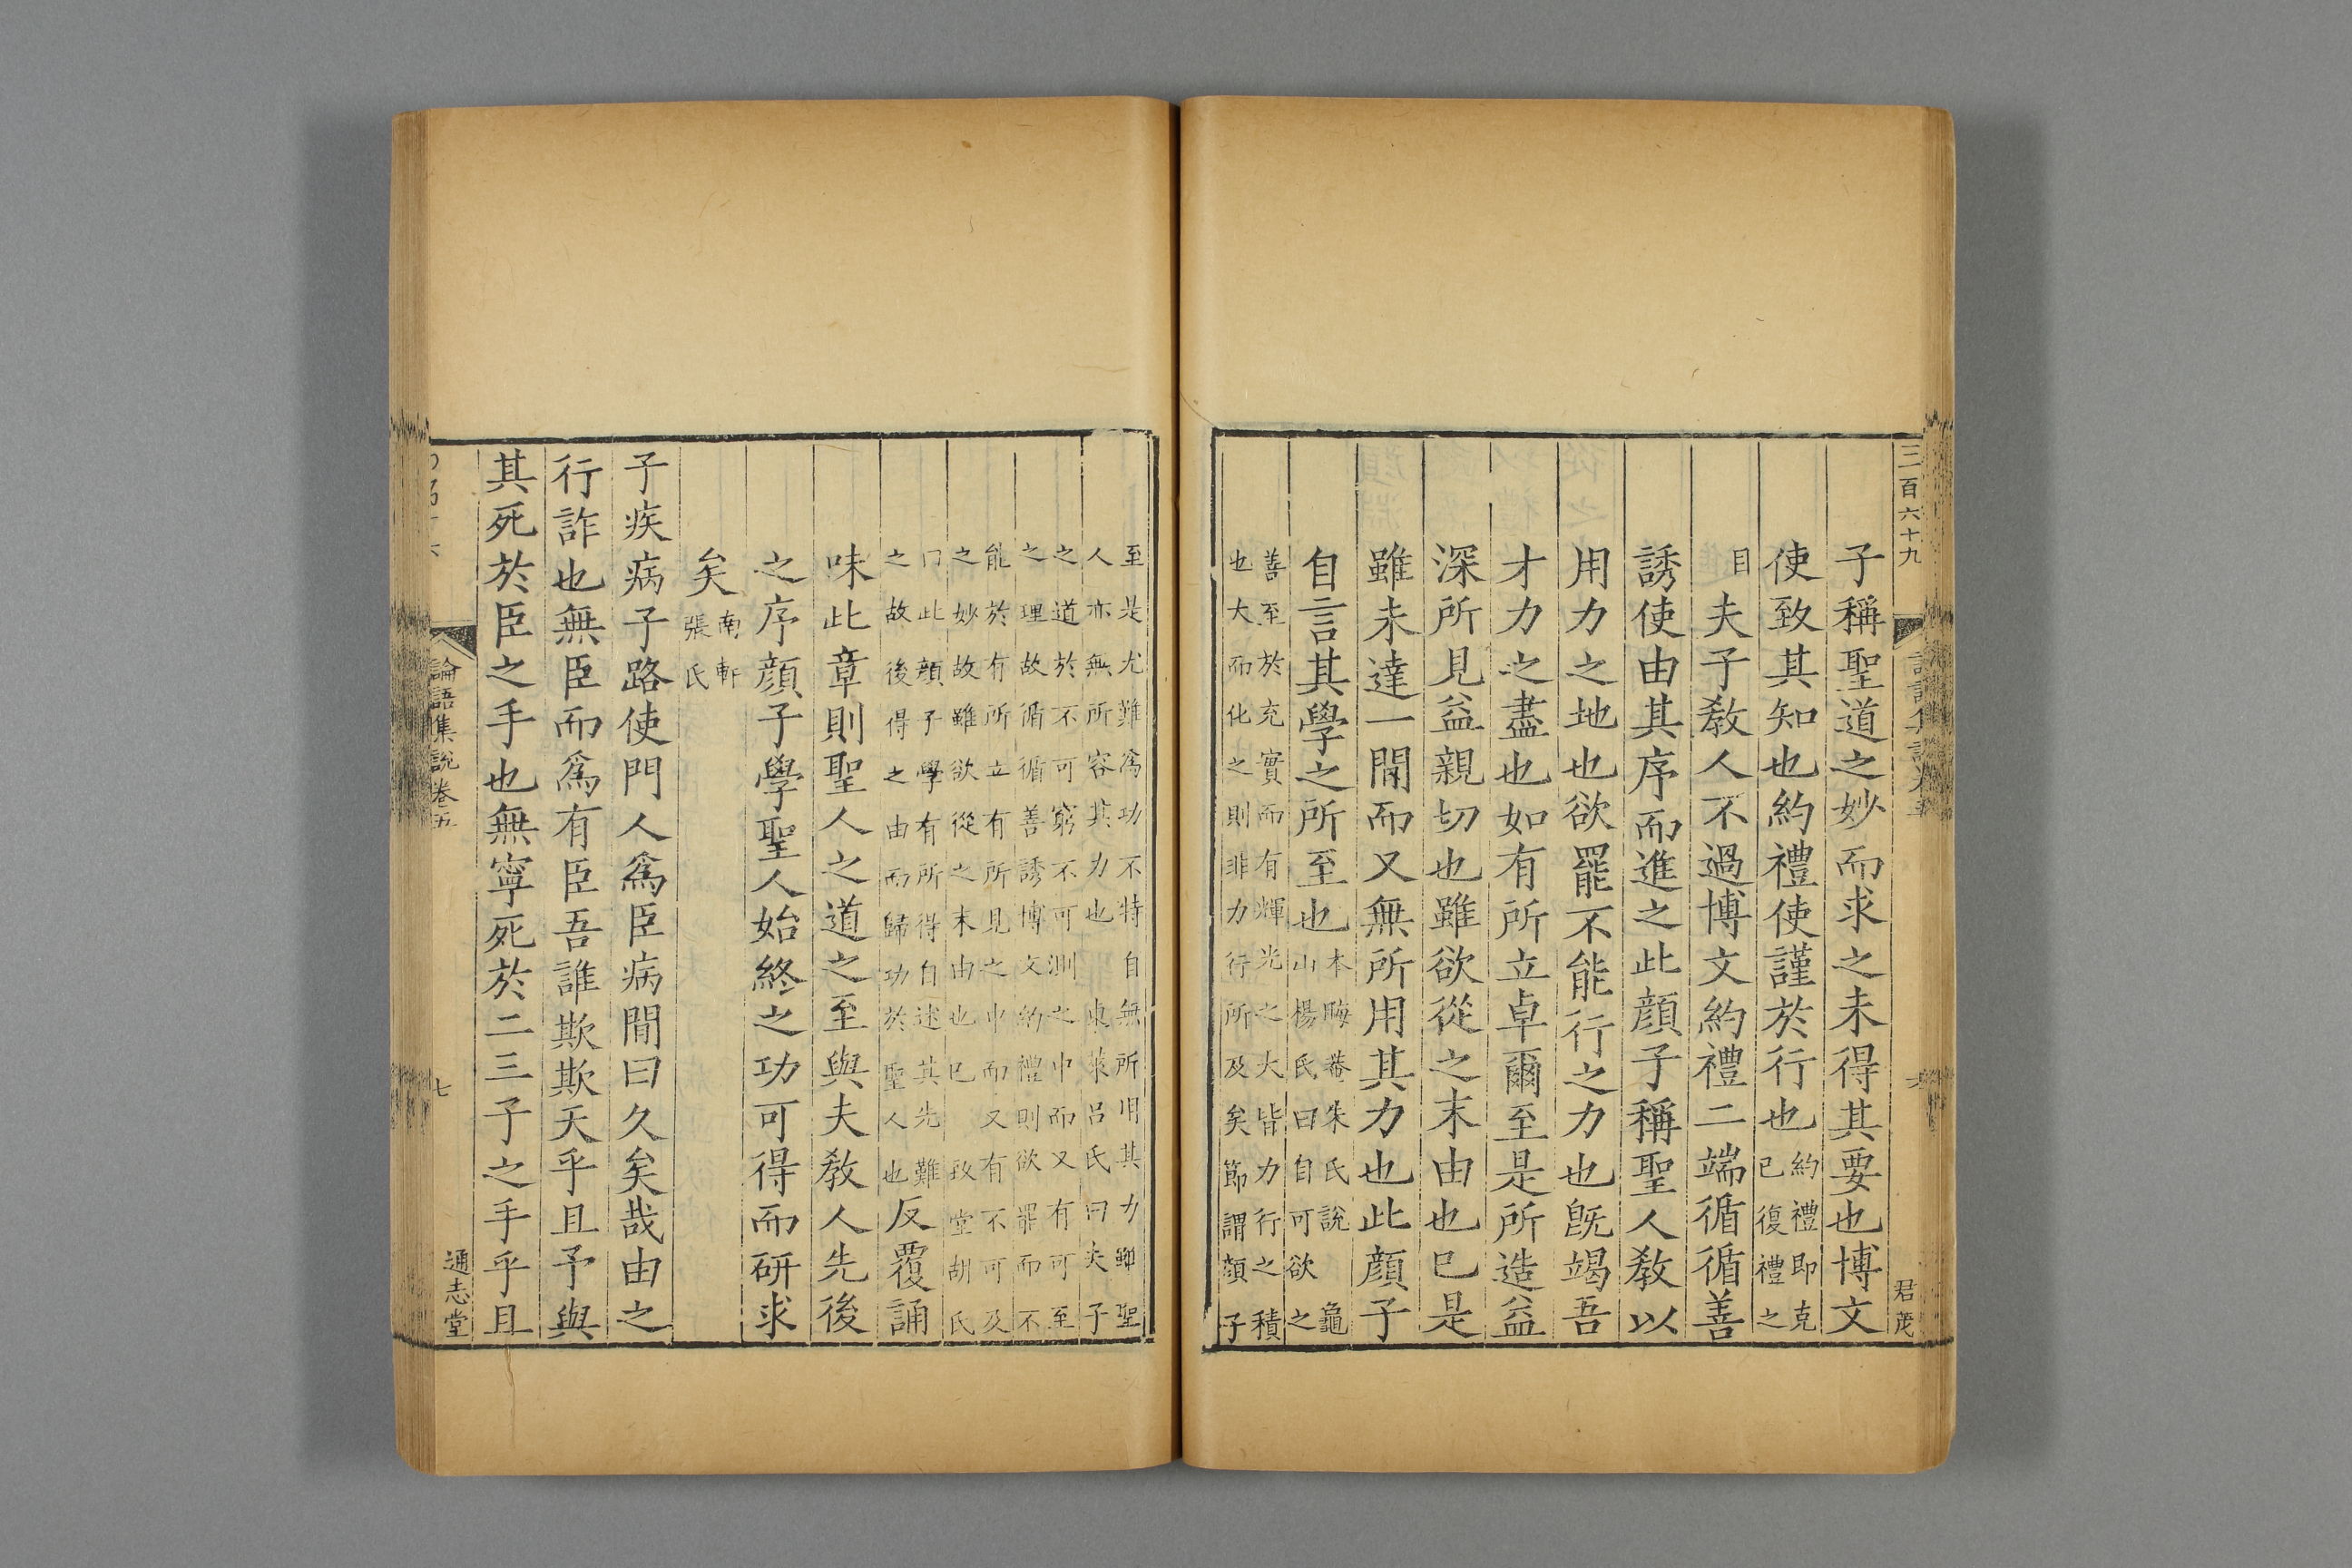 三百六十九
君茂
子稱聖道之妙而求之未得其要也博文
使致其知也約禮使謹於行也約禮即克
己復禮之
目夫子敎人不過博文約禮二端循循善
誘使由其序而進之此顏子稱聖人敎以
用力之地也欲罷不能行之力也旣竭吾
才力之盡也如有所立卓爾至是所造益
深所見益親切也雖欲從之末由也已是
雖未達一間而又無所用其力也此顏子
自言其學之所至也本晦菴朱氏說 龜
山楊氏曰自可欲之
善至於充實而有輝光之大皆力行之積
也大而化之則非力行所及矣節謂顏子
至是尤難爲功不特自無所用其力雖聖
人亦無所容其力也 東萊呂氏曰夫子
之道於不可窮不可測之中而又有可至
之理故循循善誘博文約禮則欲罷而不
能於有所立有所見之中而又有不可及
之妙故雖欲從之末由也已 致堂胡氏
曰此顏子學有所得自述其先難
之故後得之由而歸功於聖人也反覆誦
味此章則聖人之道之至與夫敎人先後
之序顏子學聖人始終之功可得而研求
矣南軒
張氏
子疾病子路使門人爲臣病間曰久矣哉由之
行詐也無臣而爲有臣吾誰欺欺天乎且予與
其死於臣之手也無寧死於二三子之手乎且
論語集說卷五
七
通志堂